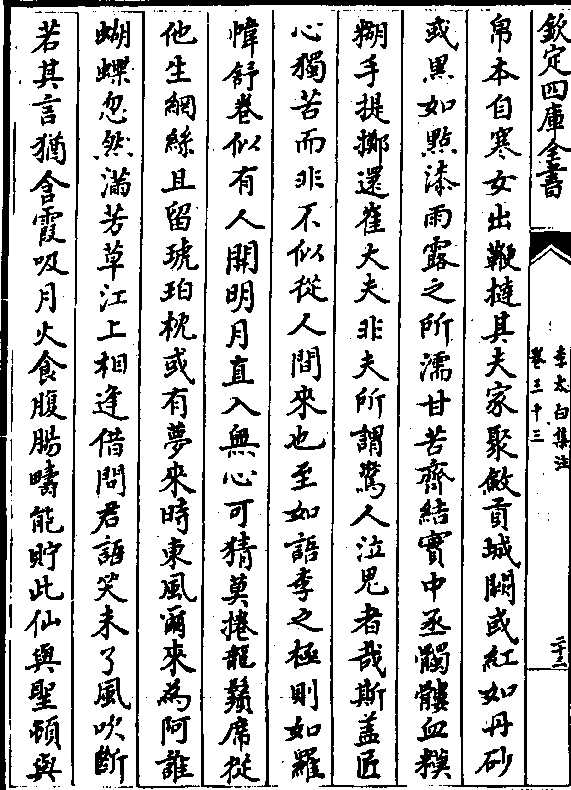 欽定四庫全書
李太白集注
卷三十三
二十三
帛本自寒女出鞭撻其夫家聚斂貢城闕或紅如丹砂
或黑如點漆雨露之所濡甘苦齊結實中丞髑髏血糢
糊手提擲還崔大夫非夫所謂驚人泣鬼者哉斯蓋匠
心獨苦而非不似從人間來也至如語李之極則如羅
幃舒卷似有人開明月直入無心可猜莫捲龍鬚席從
他生網絲且留琥珀枕或有夢來時東風爾來為阿誰
蝴蝶忽然滿芳草江上相逢借問君語笑未了風吹斷
若其言猶含霞吸月火食腹腸疇能貯此仙與聖頓與